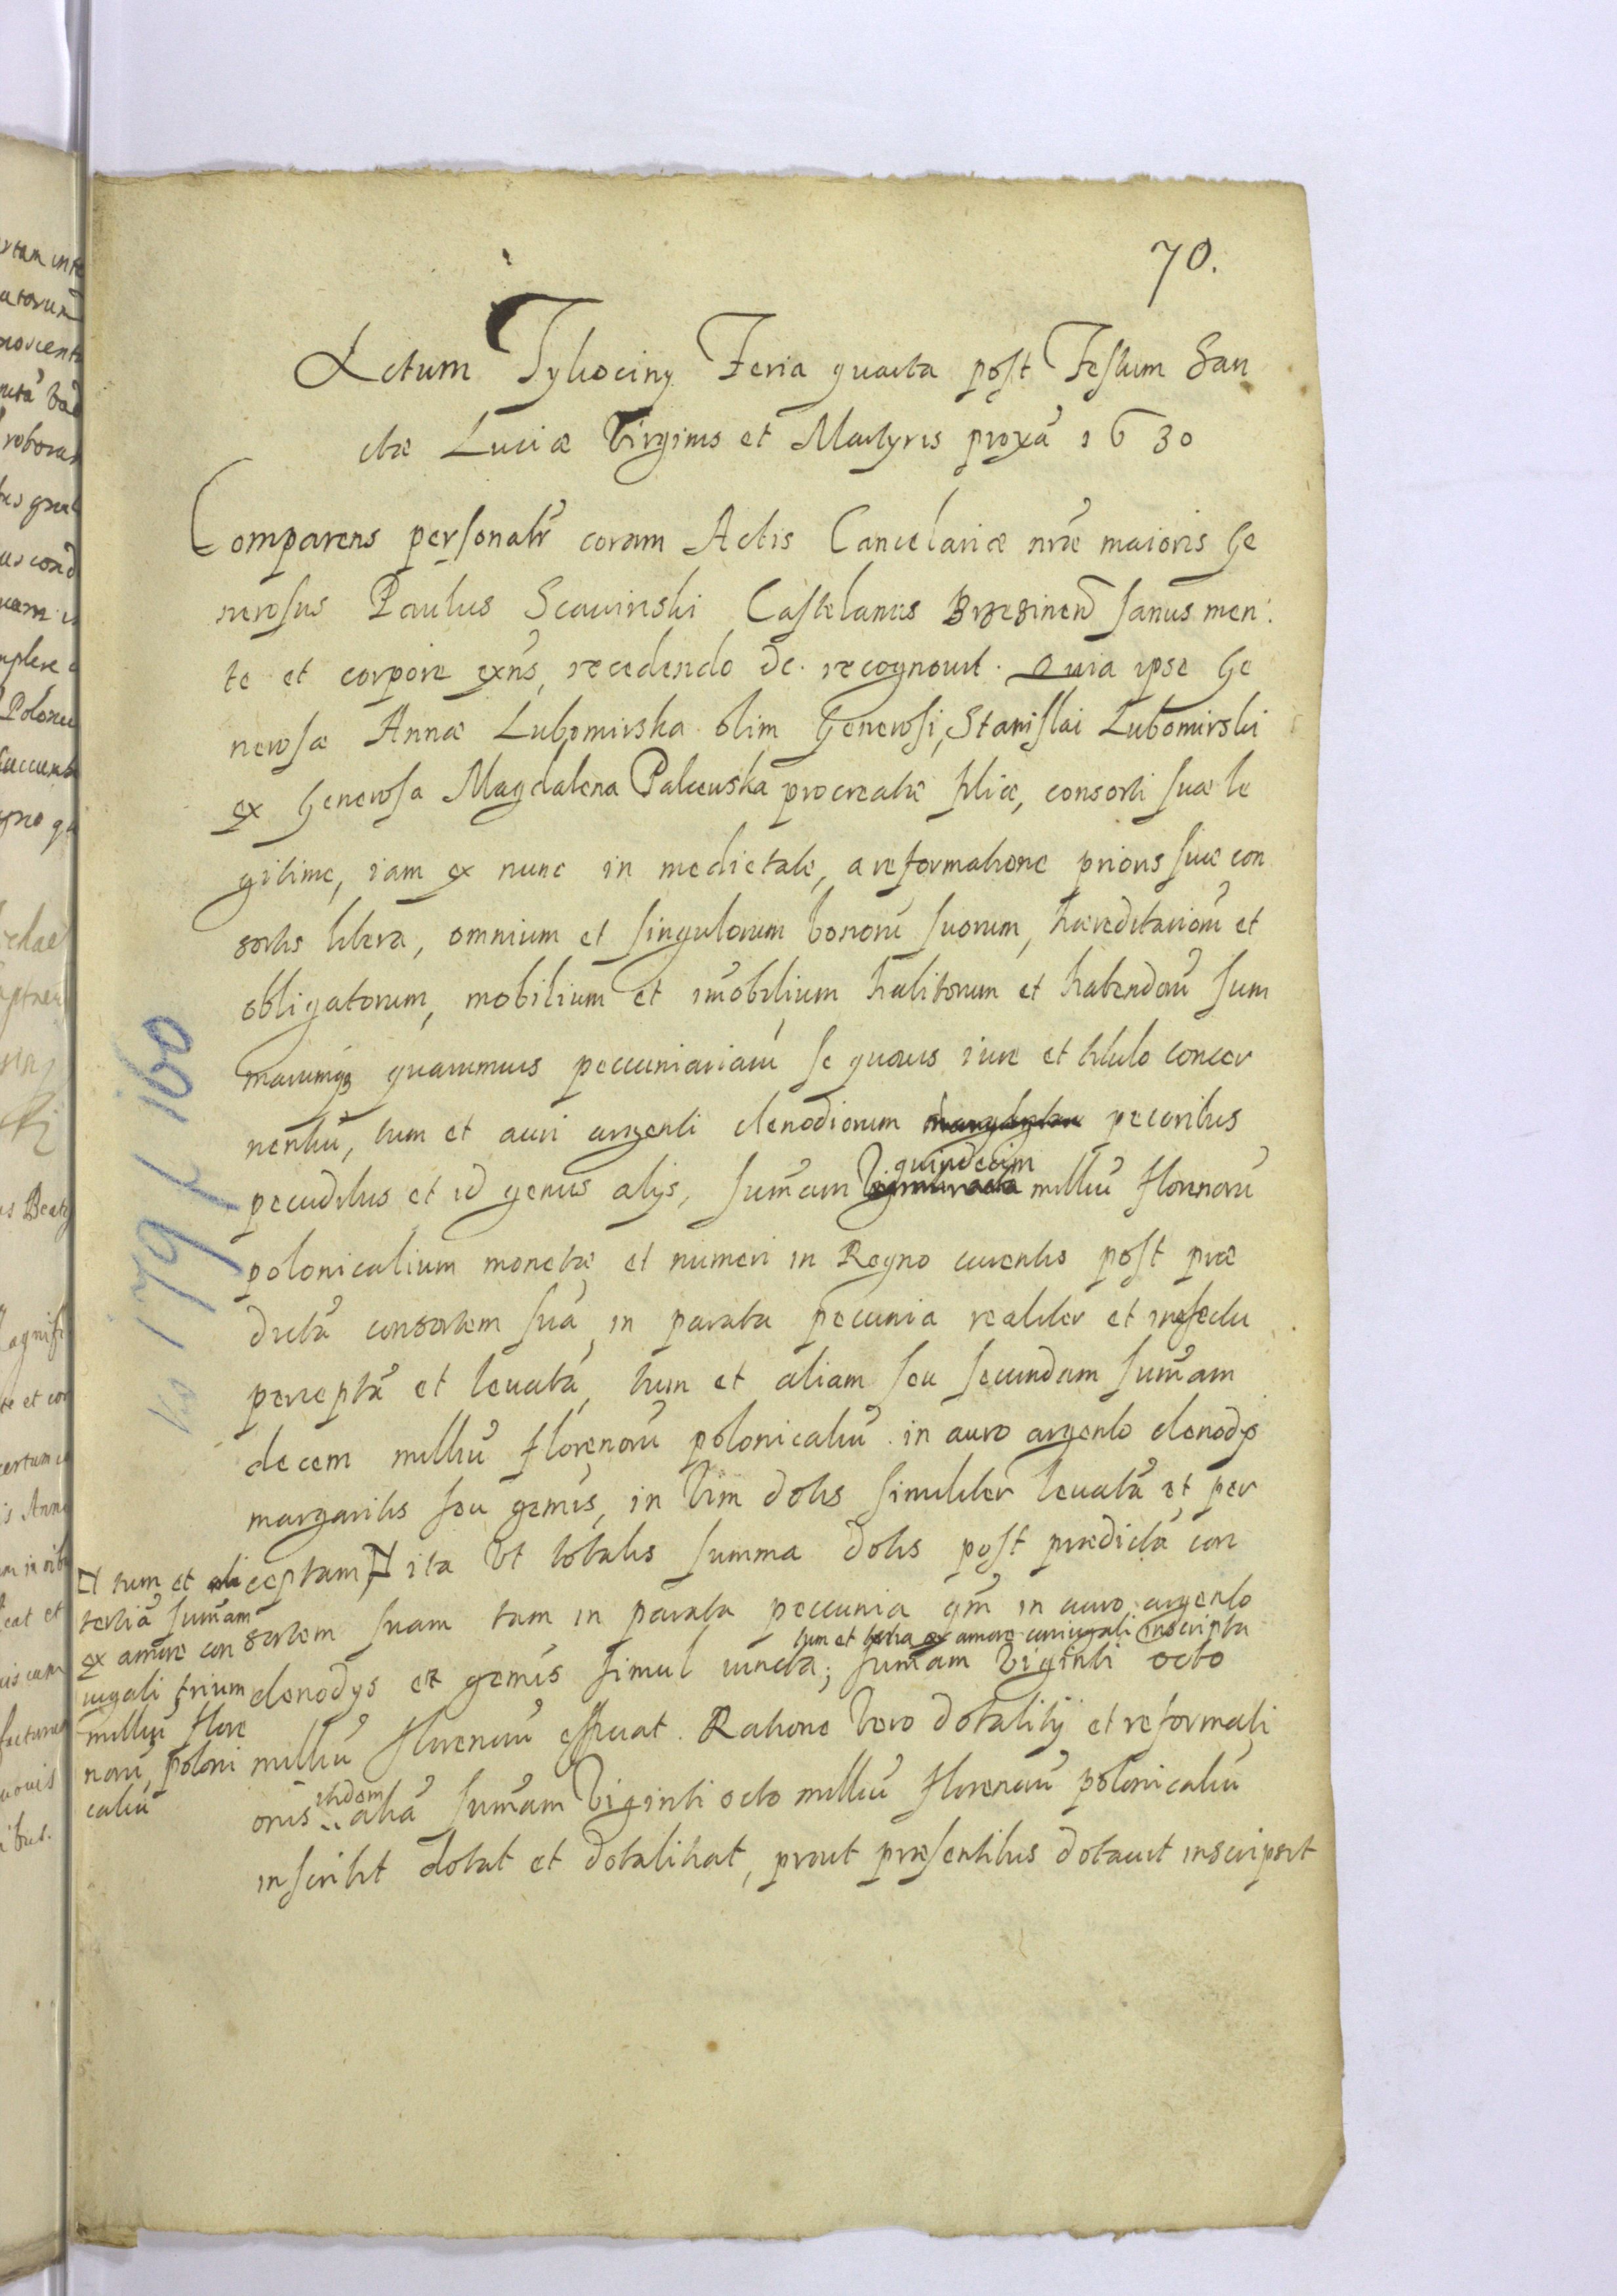 70.
Actum Tykociny Feria quarta post Festum San
ctæ Luciæ Virginis et Martyris proxã 1630
Comparens personalr̃ coram Actis Cancelariæ nr̃æ maioris Ge
nerosus Paulus Scawinski Castelanus Brzezinen̄ sanus men:
te et corpore exñs, recedendo dc. recognouit. Quia ipse Ge
nerosæ Annæ Lubomirska olim Generosi, Stanislai Lubomirski
ex Generosa Magdalena Palczewska procreatæ filiæ, consorti suæ le
gitimæ, iam ex nunc in medietate, a reformatione prioris suæ con
sortis libera, omnium et singulorum bonorũ suorum, hæreditariorũ et
obligatorum, mobilium et imõbilium habitorum et habendorũ sum
marumq3 quarumuis peccuniariarũ se quouis iure et titulo concer
nentiũ, tum et auri argenti clenodiorum pecoribus
pecudibus et id genus alys, sum̃am quindecim milliũ florenorũ
polonicalium monetæ et numeri in Regno currentis post præ
dictã consortem suã, in parata pecunia realiter et in effectu
perceptã et leuatã, tum et aliam seu secundam sum̃am
decem milliũ florenorũ polonicaliũ in auro argento clenodys
margaritis seu gem̃is, in vim dotis similiter leuatã et per
ceptam, ita vt totalis summa dotis post prædictã con
sortem suam tam in parata peccunia qm̃ in auro argento
tum et tertia ex amore coniugali inscripta
clenodys et gem̃is simul iuncta; sum̃am viginti octo
milliũ florenorũ efficiat. Ratione vero dotalitij et reformati
onis itidem aliã sum̃am viginti octo milliũ florenorũ polonicaliũ
inscribit dotat et dotalitiat, prout præsentibus dotauit inscripsit
tum et
tertiã sum̃am
ex amore con
iugali trium
milliũ flore
norũ, poloni
caliũ
179 / 160